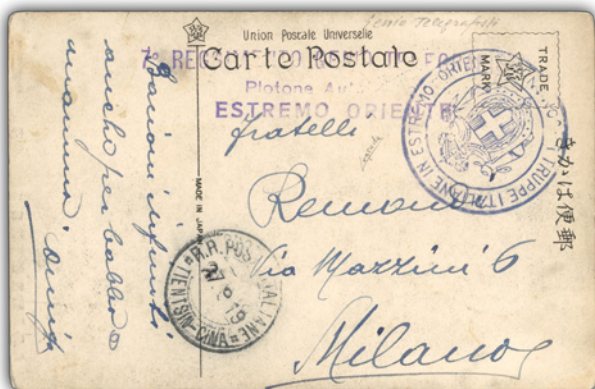 Genio Telegrafisti
Union Postale Universelle
Carte Postale
7° REGGIMENTO
Plotone
ESTREMO ORIENTE
TRADE
MARK
TRUPPE ITALIANE IN ESTREMO ORIENTE
きかは便郵
MADE IN JAPAN
fratelli
Via Mazzini 6
Milano
R.R. POSTE ITALIANE
TIENTSIN-CINA
19
infiniti
anche per babbo e
mamma